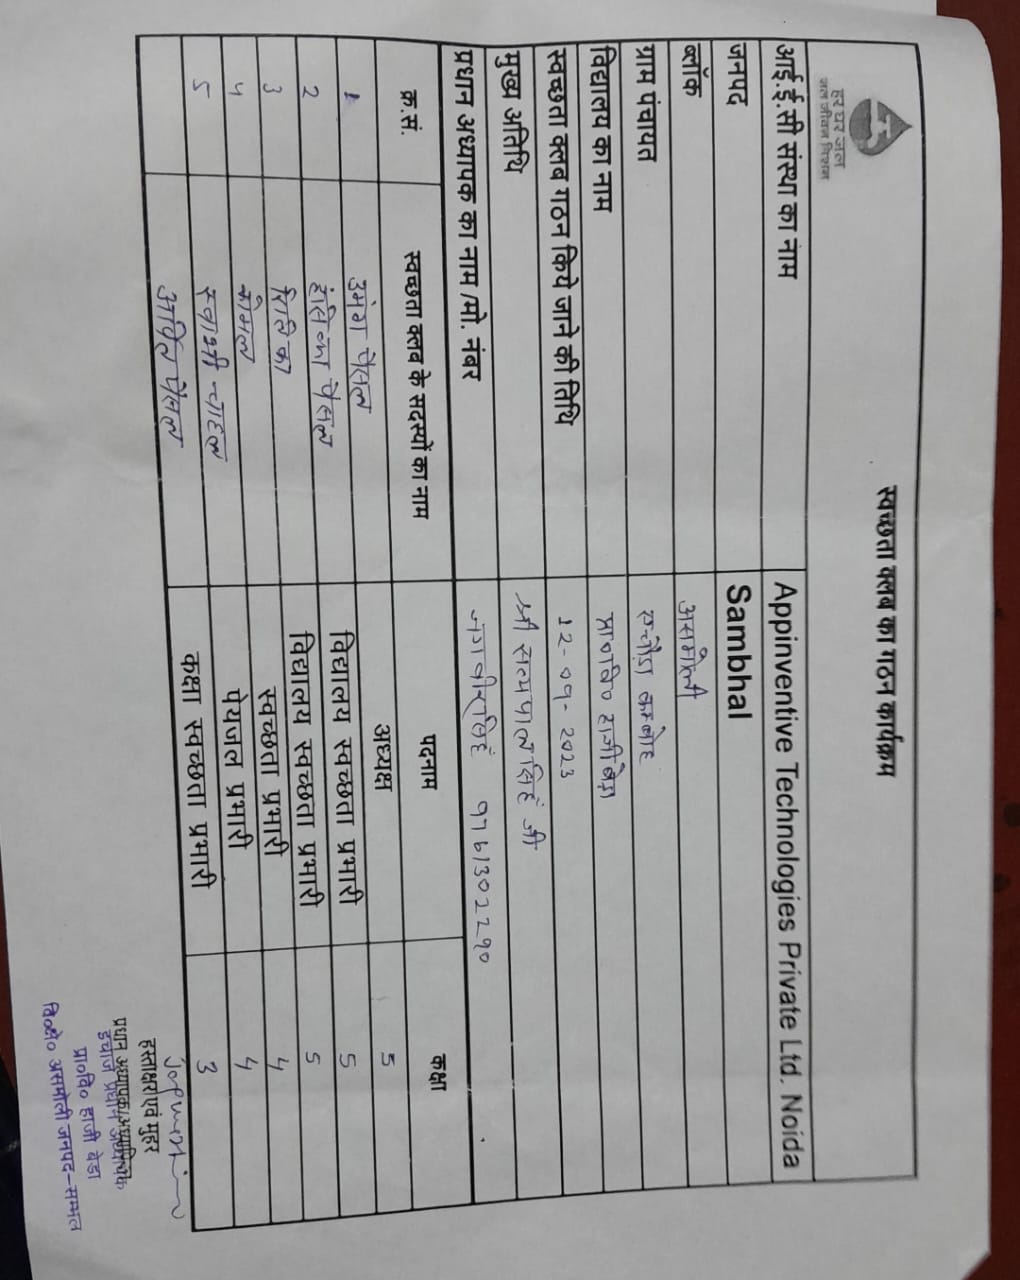 हर घर जल
जल जीवन मिशन
स्वच्छता क्लब का गठन कार्यक्रम
आई.ई.सी संस्था का नाम Appinventive Technologies Private Ltd. Noida
जनपद Sambhal
ब्लॉक असमोली
ग्राम पंचायत
विद्यालय का नाम प्रा०वि० हाजीबेड़ा
स्वच्छता क्लब गठन किये जाने की तिथि 12-09-2023
मुख्य अतिथि श्री सत्यपाल सिंह जी
प्रधान अध्यापक का नाम /मो. नंबर 9761302290
क्र.सं. स्वच्छता क्लब के सदस्यों का नाम पदनाम कक्षा
1 उमंग चाहल अध्यक्ष 5
2 चाहल विद्यालय स्वच्छता प्रभारी 5
3 विद्यालय स्वच्छता प्रभारी 5
4 कोमल स्वच्छता प्रभारी 4
5 चाहल पेयजल प्रभारी 4
अर्पित चाहल कक्षा स्वच्छता प्रभारी 3
हस्ताक्षर एवं मुहर
प्रधान अध्यापक/अध्यापिका
इंचार्ज प्रधान अध्यापक
प्रा०वि० हाजी बेडा
वि०क्षे० असमोली जनपद-सम्भल